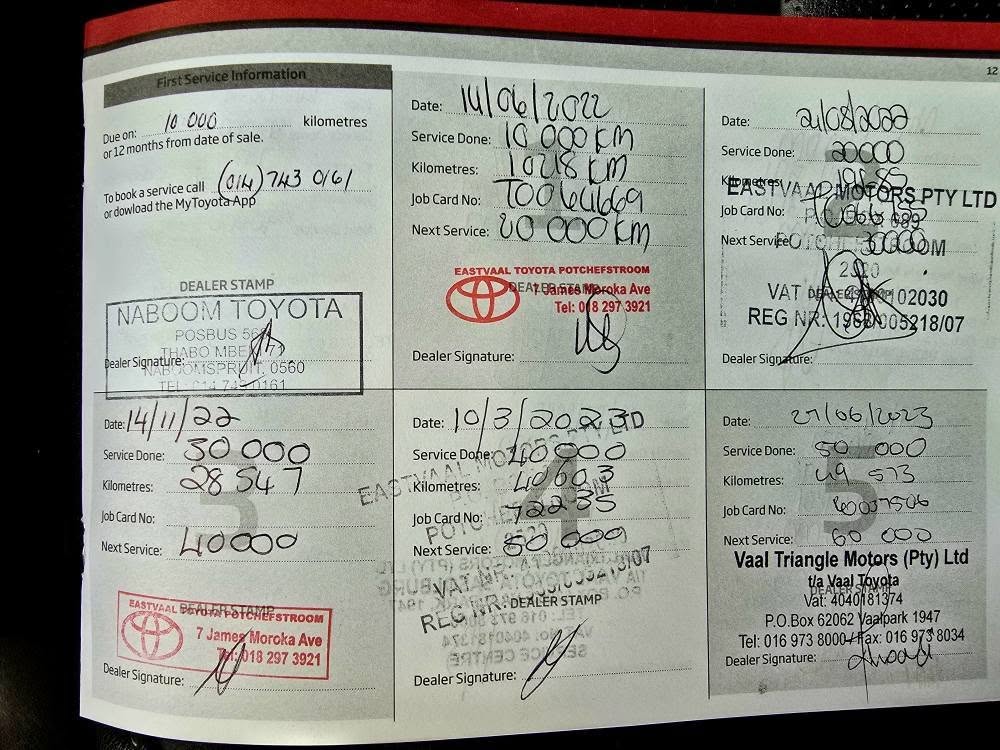 12
First Service Information
Due on: 10 000 kilometres
or 12 months from date of sale.
To book a service call (014) 743 0161
or dowload the MyToyota App
DEALER STAMP
NABOOM TOYOTA
POSBUS
THABO MBEKI
NABOOMSPRUIT, 0560
Dealer Signature:
TEL: 014 743 0161
Date: 14/06/2022
Service Done: 10 000 KM
Kilometres: 10218 KM
Job Card No: T0064669
Next Service: 20 000 KM
EASTVAAL TOYOTA POTCHEFSTROOM
DEALER STAMP
7 James Moroka Ave
Tel: 018 297 3921
Dealer Signature:
Date: 21/08/2022
Service Done: 20000
Kilometres:
EASTVAAL MOTORS PTY LTD
Job Card No:
Next Service: 30000
2520
VAT
DEALER STAMP
102030
REG NR: 005218/07
Dealer Signature:
Date: 14/11/22
Service Done: 30 000
Kilometres: 28 547
Job Card No:
Next Service: 40000
3
EASTVAAL TOYOTA POTCHEFSTROOM
DEALER STAMP
7 James Moroka Ave
Tel: 018 297 3921
Dealer Signature:
Date: 10/3/2023
Service Done: 40000
Kilometres: 40003
EASTVAAL MOTORS PTY LTD
Job Card No: 72235
Next Service: 50 000
4
VAT NR
REG NR:
DEALER STAMP
Dealer Signature:
Date: 27/06/2023
Service Done: 50 000
Kilometres: 49 573
Job Card No:
Next Service: 60 000
5
Vaal Triangle Motors (Pty) Ltd
t/a Vaal Toyota
DEALER STAMP
Vat: 4040181374
P.O.Box 62062 Vaalpark 1947
Tel: 016 973 8000 / Fax: 016 973 8034
Dealer Signature: